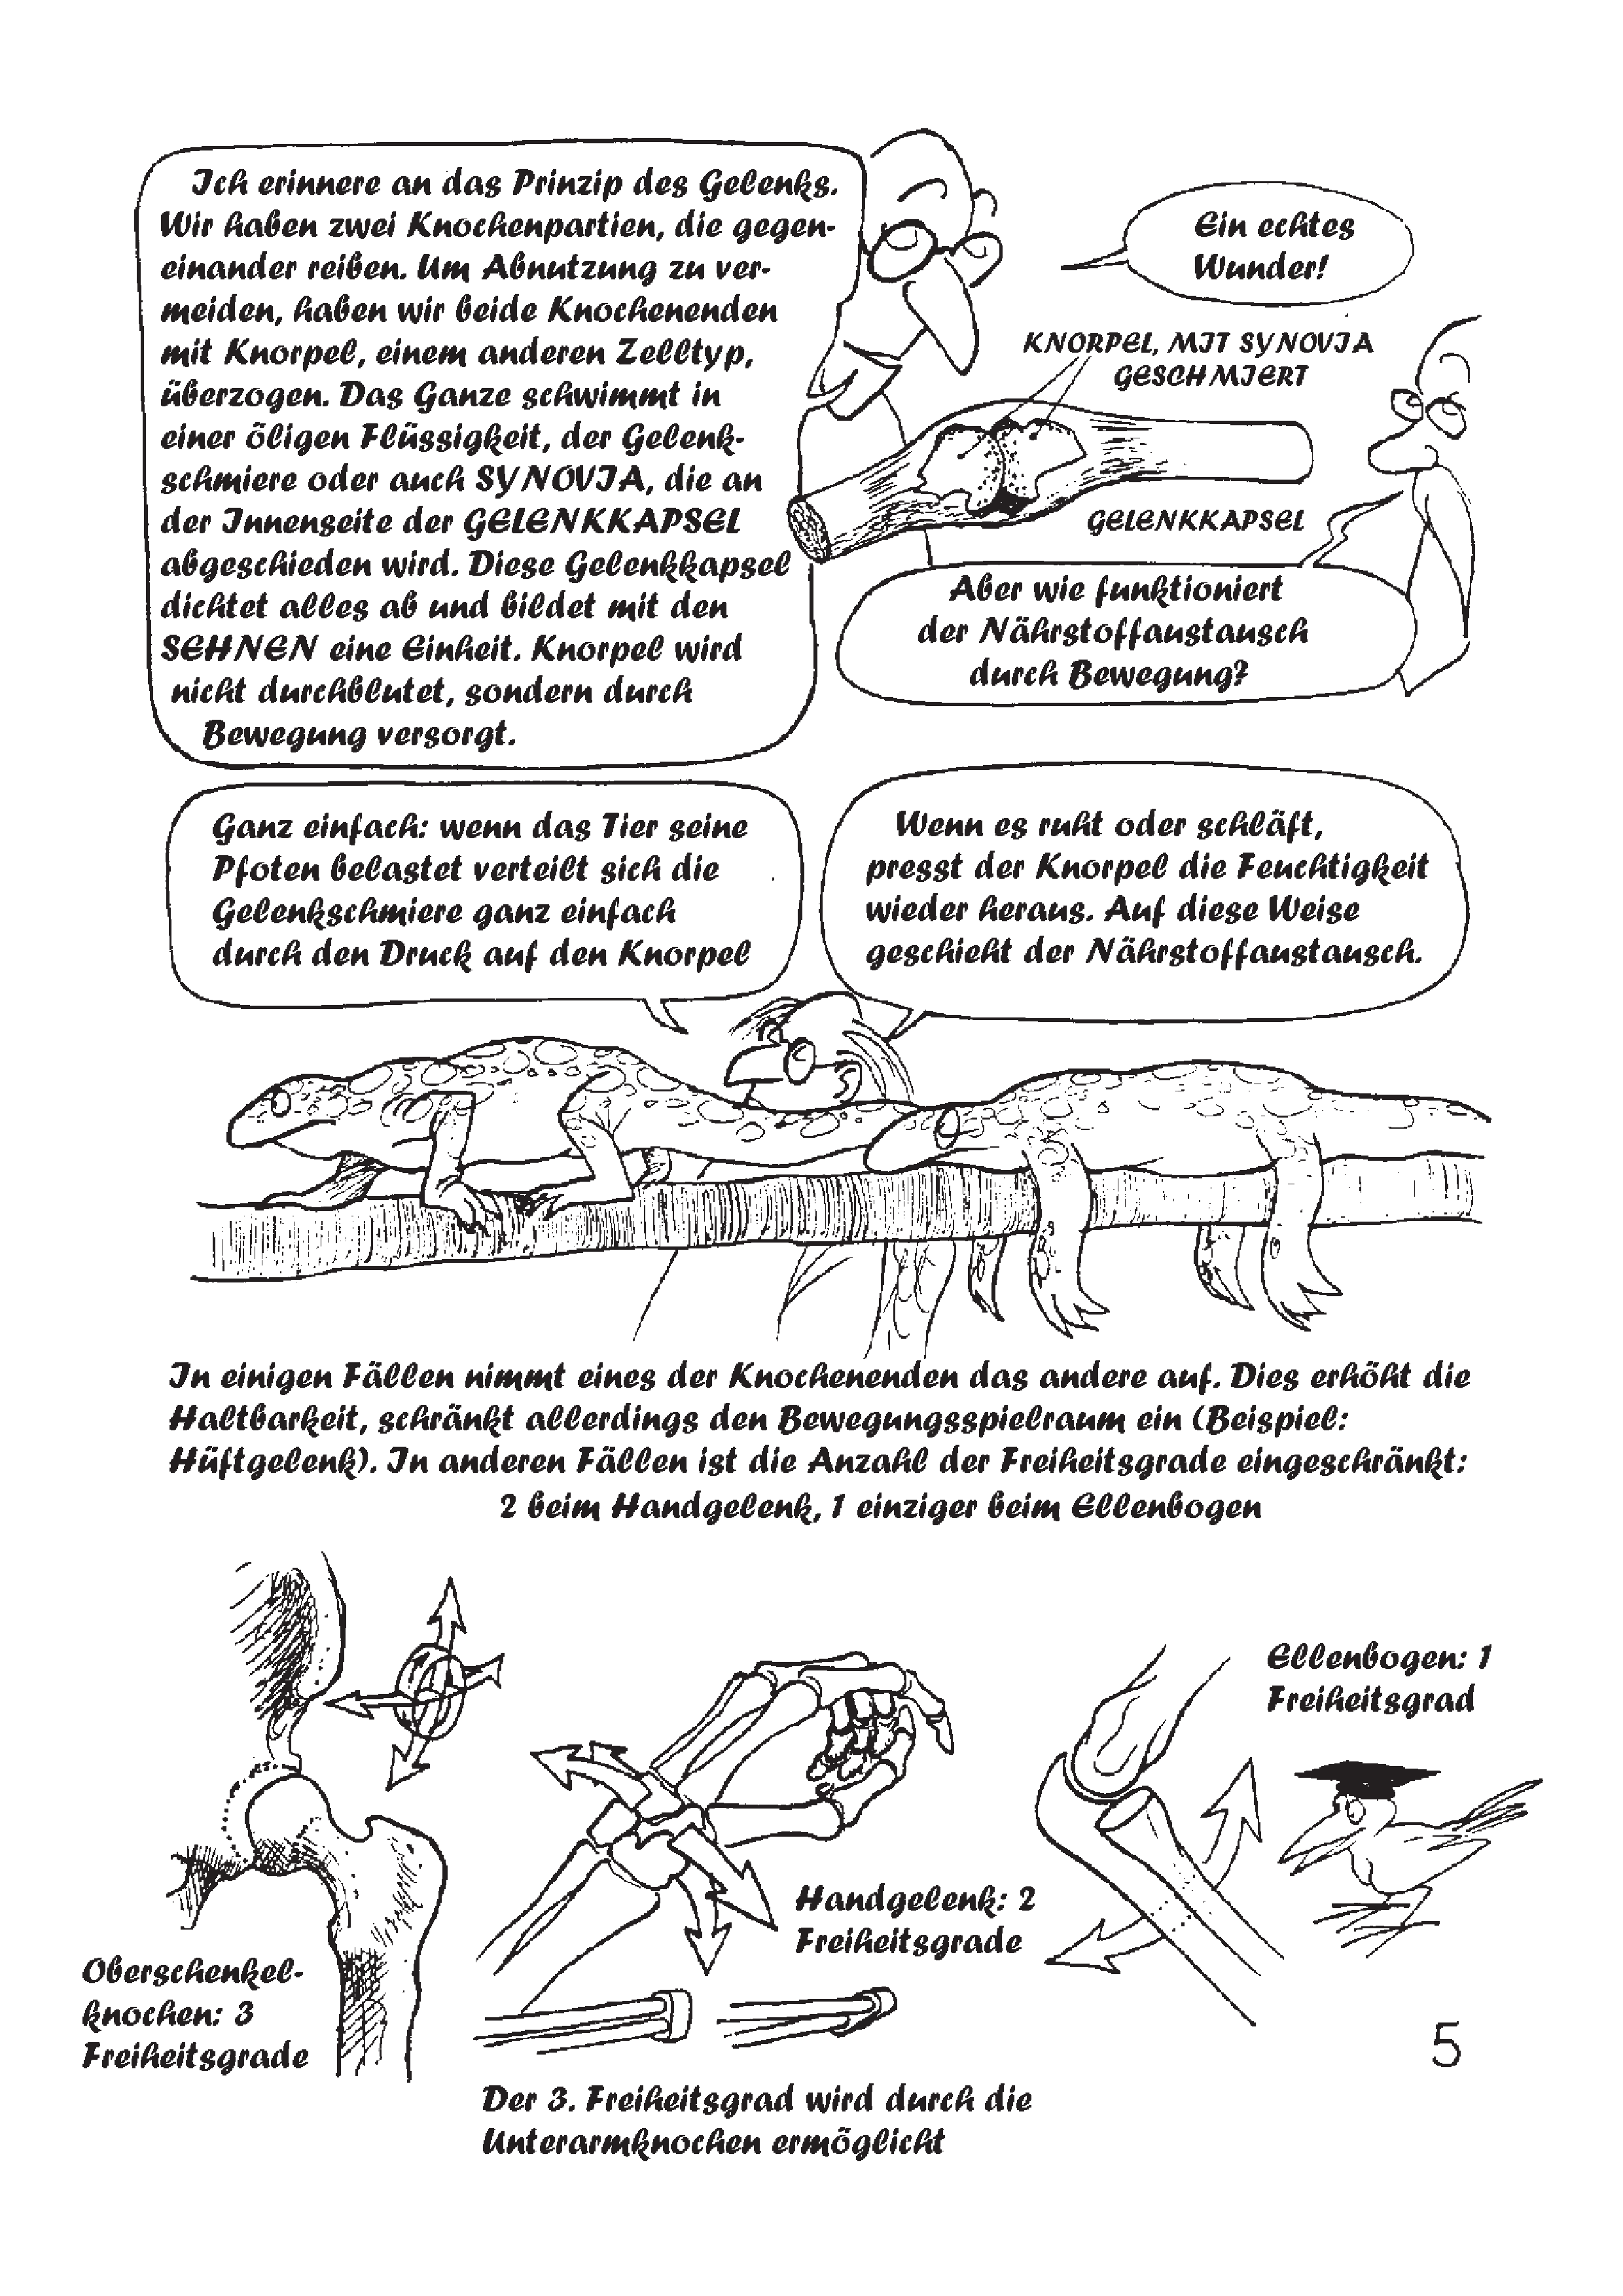 Ich erinnere an das Prinzip des Gelenks.
Wir haben zwei Knochenpartien, die gegen-
einander reiben. Um Abnutzung zu ver-
meiden, haben wir beide Knochenenden
mit Knorpel, einem anderen Zelltyp,
überzogen. Das Ganze schwimmt in
einer öligen Flüssigkeit, der Gelenk-
schmiere oder auch SYNOVIA, die an
der Innenseite der GELENKKAPSEL
abgeschieden wird. Diese Gelenkkapsel
dichtet alles ab und bildet mit den
SEHNEN eine Einheit. Knorpel wird
nicht durchblutet, sondern durch
Bewegung versorgt.
Ein echtes
Wunder!
KNORPEL, MIT SYNOVIA
GESCHMIERT
GELENKKAPSEL
Aber wie funktioniert
der Nährstoffaustausch
durch Bewegung?
Ganz einfach: wenn das Tier seine
Pfoten belastet verteilt sich die
Gelenkschmiere ganz einfach
durch den Druck auf den Knorpel
Wenn es ruht oder schläft,
presst der Knorpel die Feuchtigkeit
wieder heraus. Auf diese Weise
geschieht der Nährstoffaustausch.
In einigen Fällen nimmt eines der Knochenenden das andere auf. Dies erhöht die
Haltbarkeit, schränkt allerdings den Bewegungsspielraum ein (Beispiel:
Hüftgelenk). In anderen Fällen ist die Anzahl der Freiheitsgrade eingeschränkt:
2 beim Handgelenk, 1 einziger beim Ellenbogen
Ellenbogen: 1
Freiheitsgrad
Handgelenk: 2
Freiheitsgrade
Oberschenkel-
knochen: 3
Freiheitsgrade
Der 3. Freiheitsgrad wird durch die
Unterarmknochen ermöglicht
5